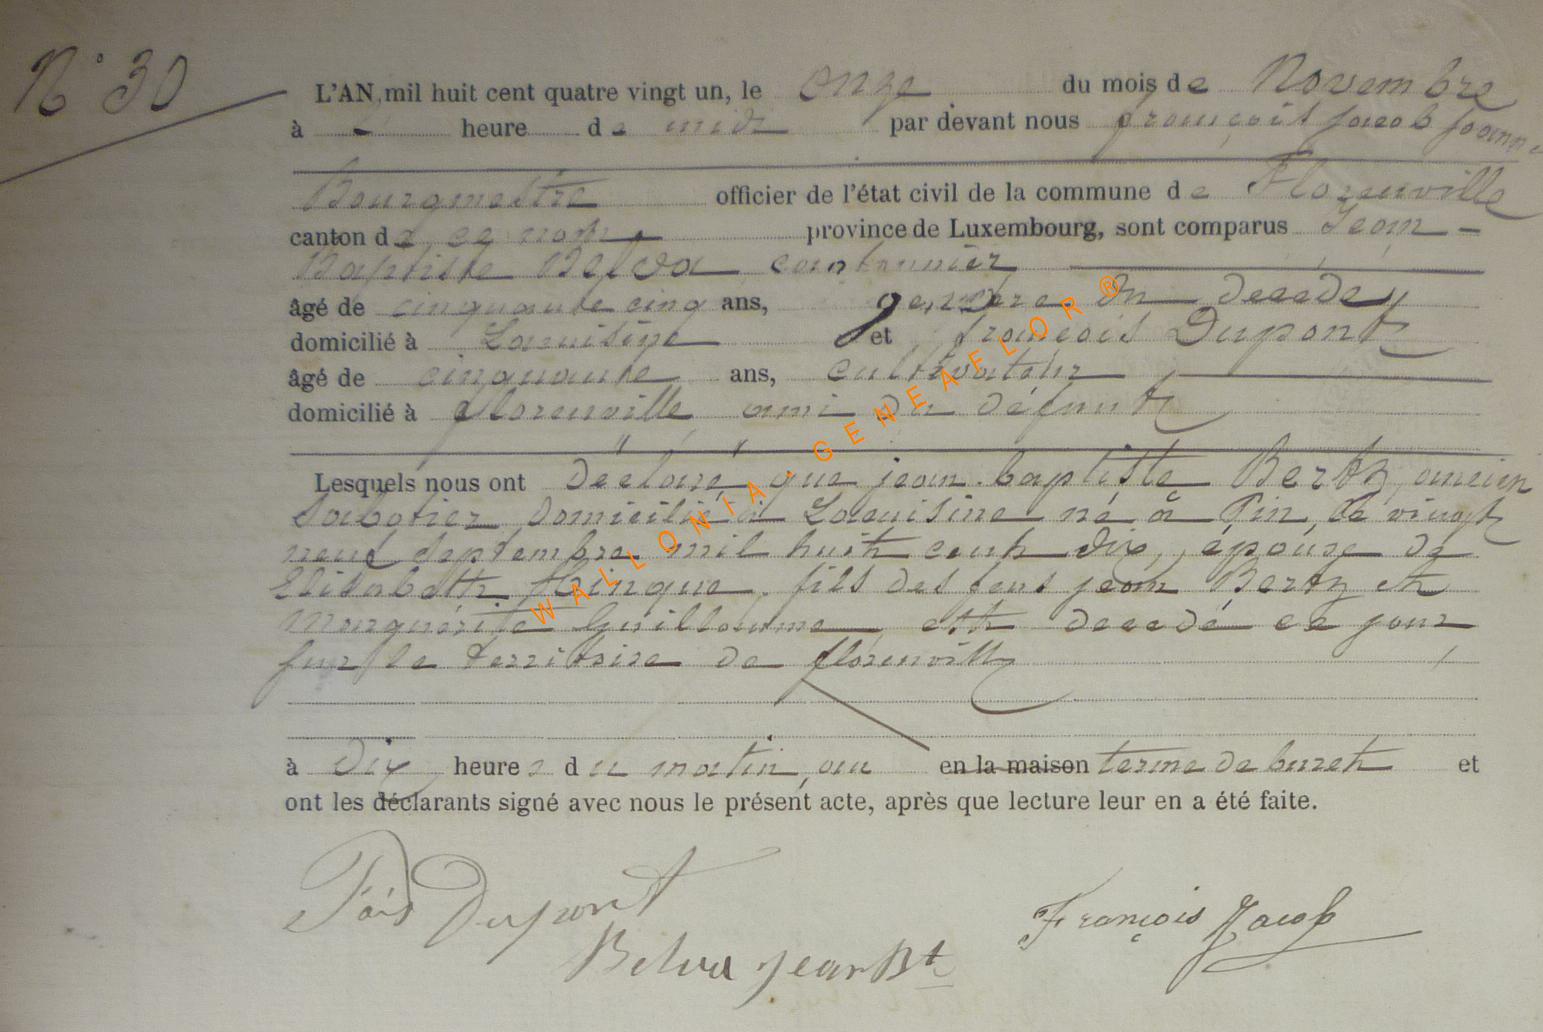 N° 30
L'AN mil huit cent quatre vingt un, le onze du mois de Novembre
à heure de midi par devant nous françois Jacob
Bourgmestre officier de l'état civil de la commune de Florenville
canton de ce nom, province de Luxembourg, sont comparus Jean-
Baptiste Belva cantonnier
âgé de cinquante cinq ans, gendre du decede
domicilié à Lacuisine et françois Dupont
âgé de cinquante ans, cultivateur
domicilié à florenville ami du défunt
Lesquels nous ont déclaré que jean baptiste Bertz, ancien
Sabotier domicilié à Lacuisine né à Pin, le vingt
neuf Septembre mil huit cent dix, épouse de
Elisabeth fils des feus jean Bertz et
Marguerite Guillaume est decedé ce jour
sur le territoire de florenville
à dix heures du matin, au en la maison terme de et
ont les déclarants signé avec nous le présent acte, après que lecture leur en a été faite.
Fois Dupont
Belva jean Bt
François Jacob
WALLONIA-GENEAFLOR®